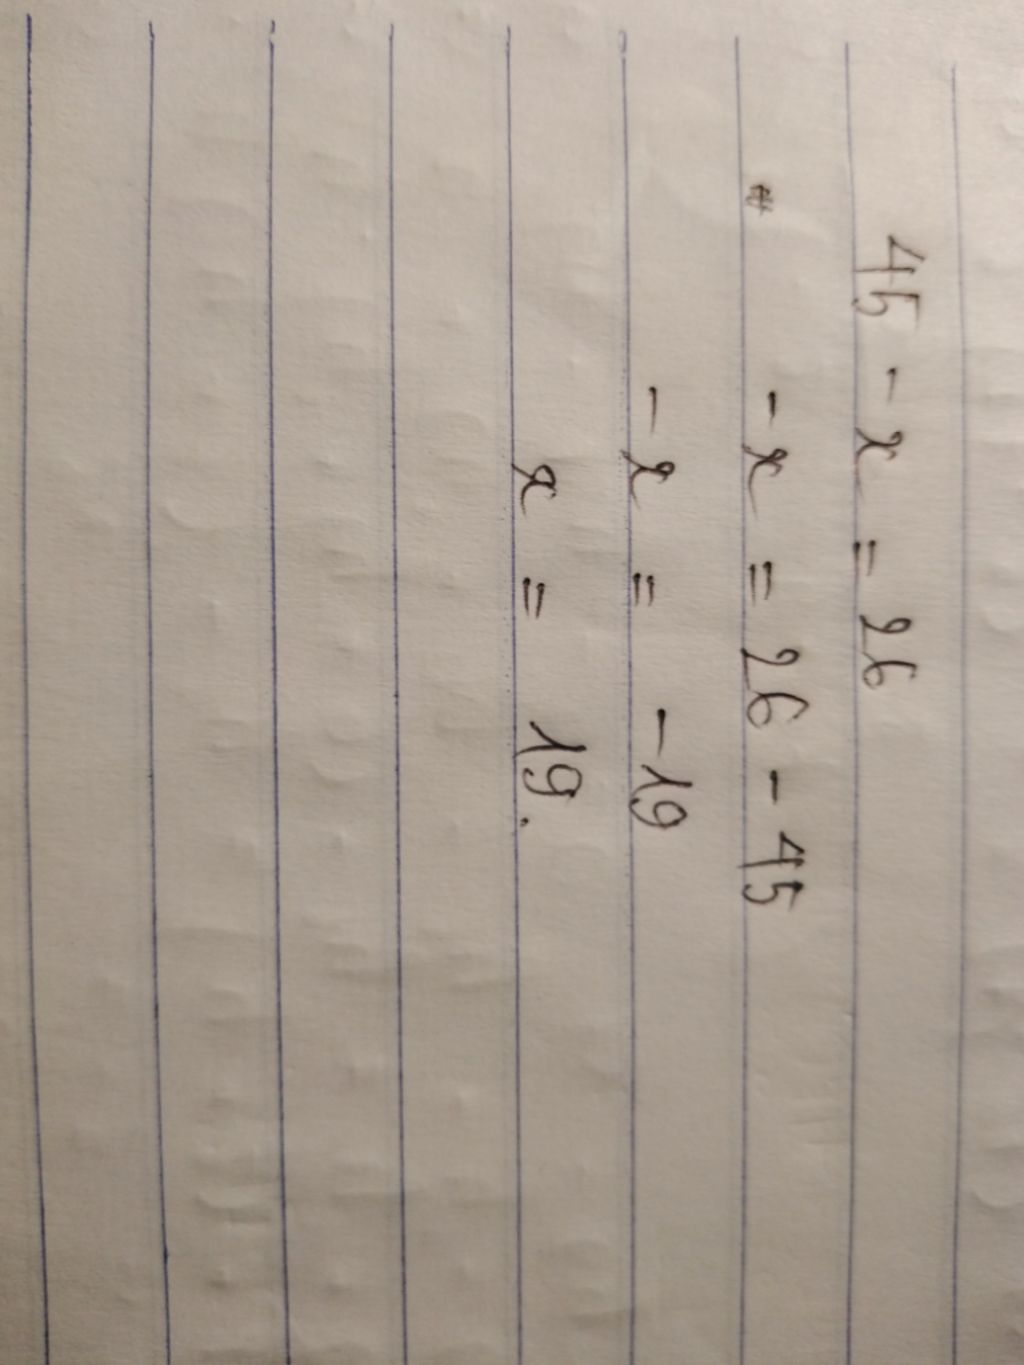 45 - x = 26
- x = 26 - 45
- x = -19
x = 19.